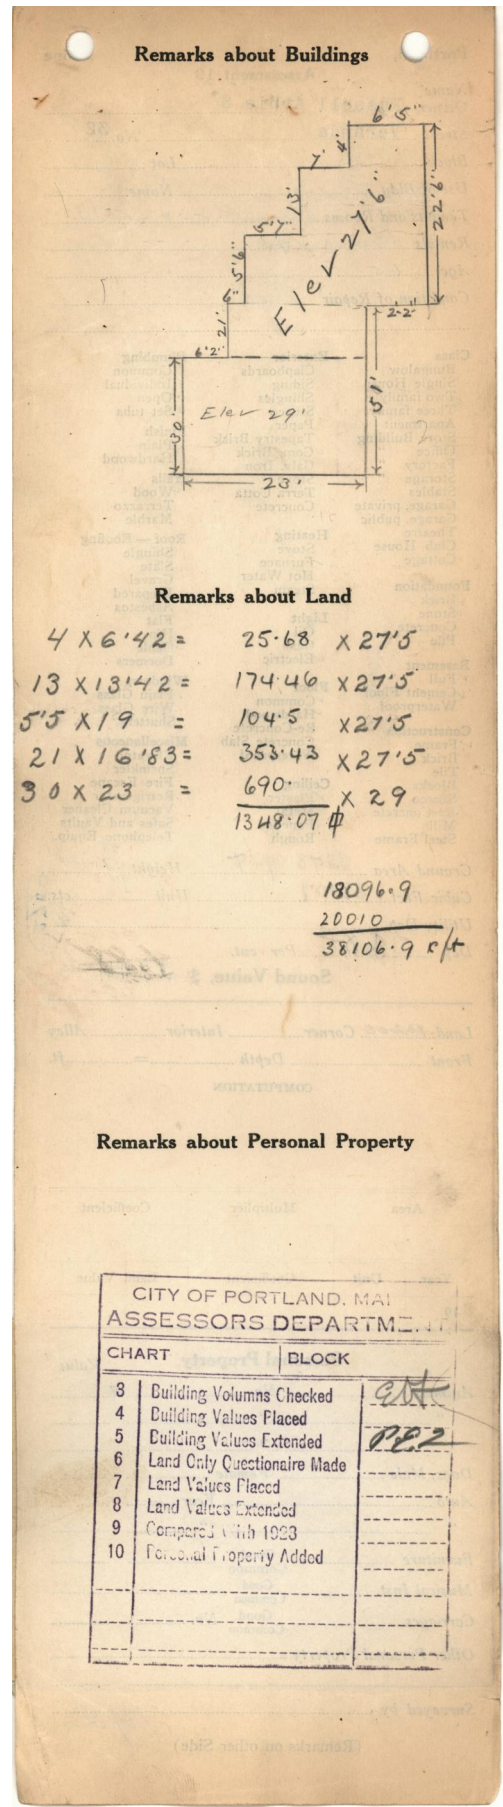 Remarks about Buildings
6'5"
4'
7'
13'
22'6"
Elev 27'6"
5'7"
5'6"
6"
2'2"
21'
6'2"
51'
Elev 29'
30'
23'
Remarks about Land
4 X 6'42 = 25.68 X 27'5
13 X 13'42 = 174.46 X 27'5
5'5 X 19 = 104.5 X 27'5
21 X 16'83 = 353.43 X 27'5
30 X 23 = 690. X 29
1348.07
18096.9
20010
38106.9 c/ft
Remarks about Personal Property
CITY OF PORTLAND, MAI
ASSESSORS DEPARTMENT
CHART BLOCK
3 Building Volumns Checked
4 Building Values Placed
5 Building Values Extended
6 Land Only Questionaire Made
7 Land Values Placed
8 Land Values Extended
9 Compared With 1923
10 Personal Property Added